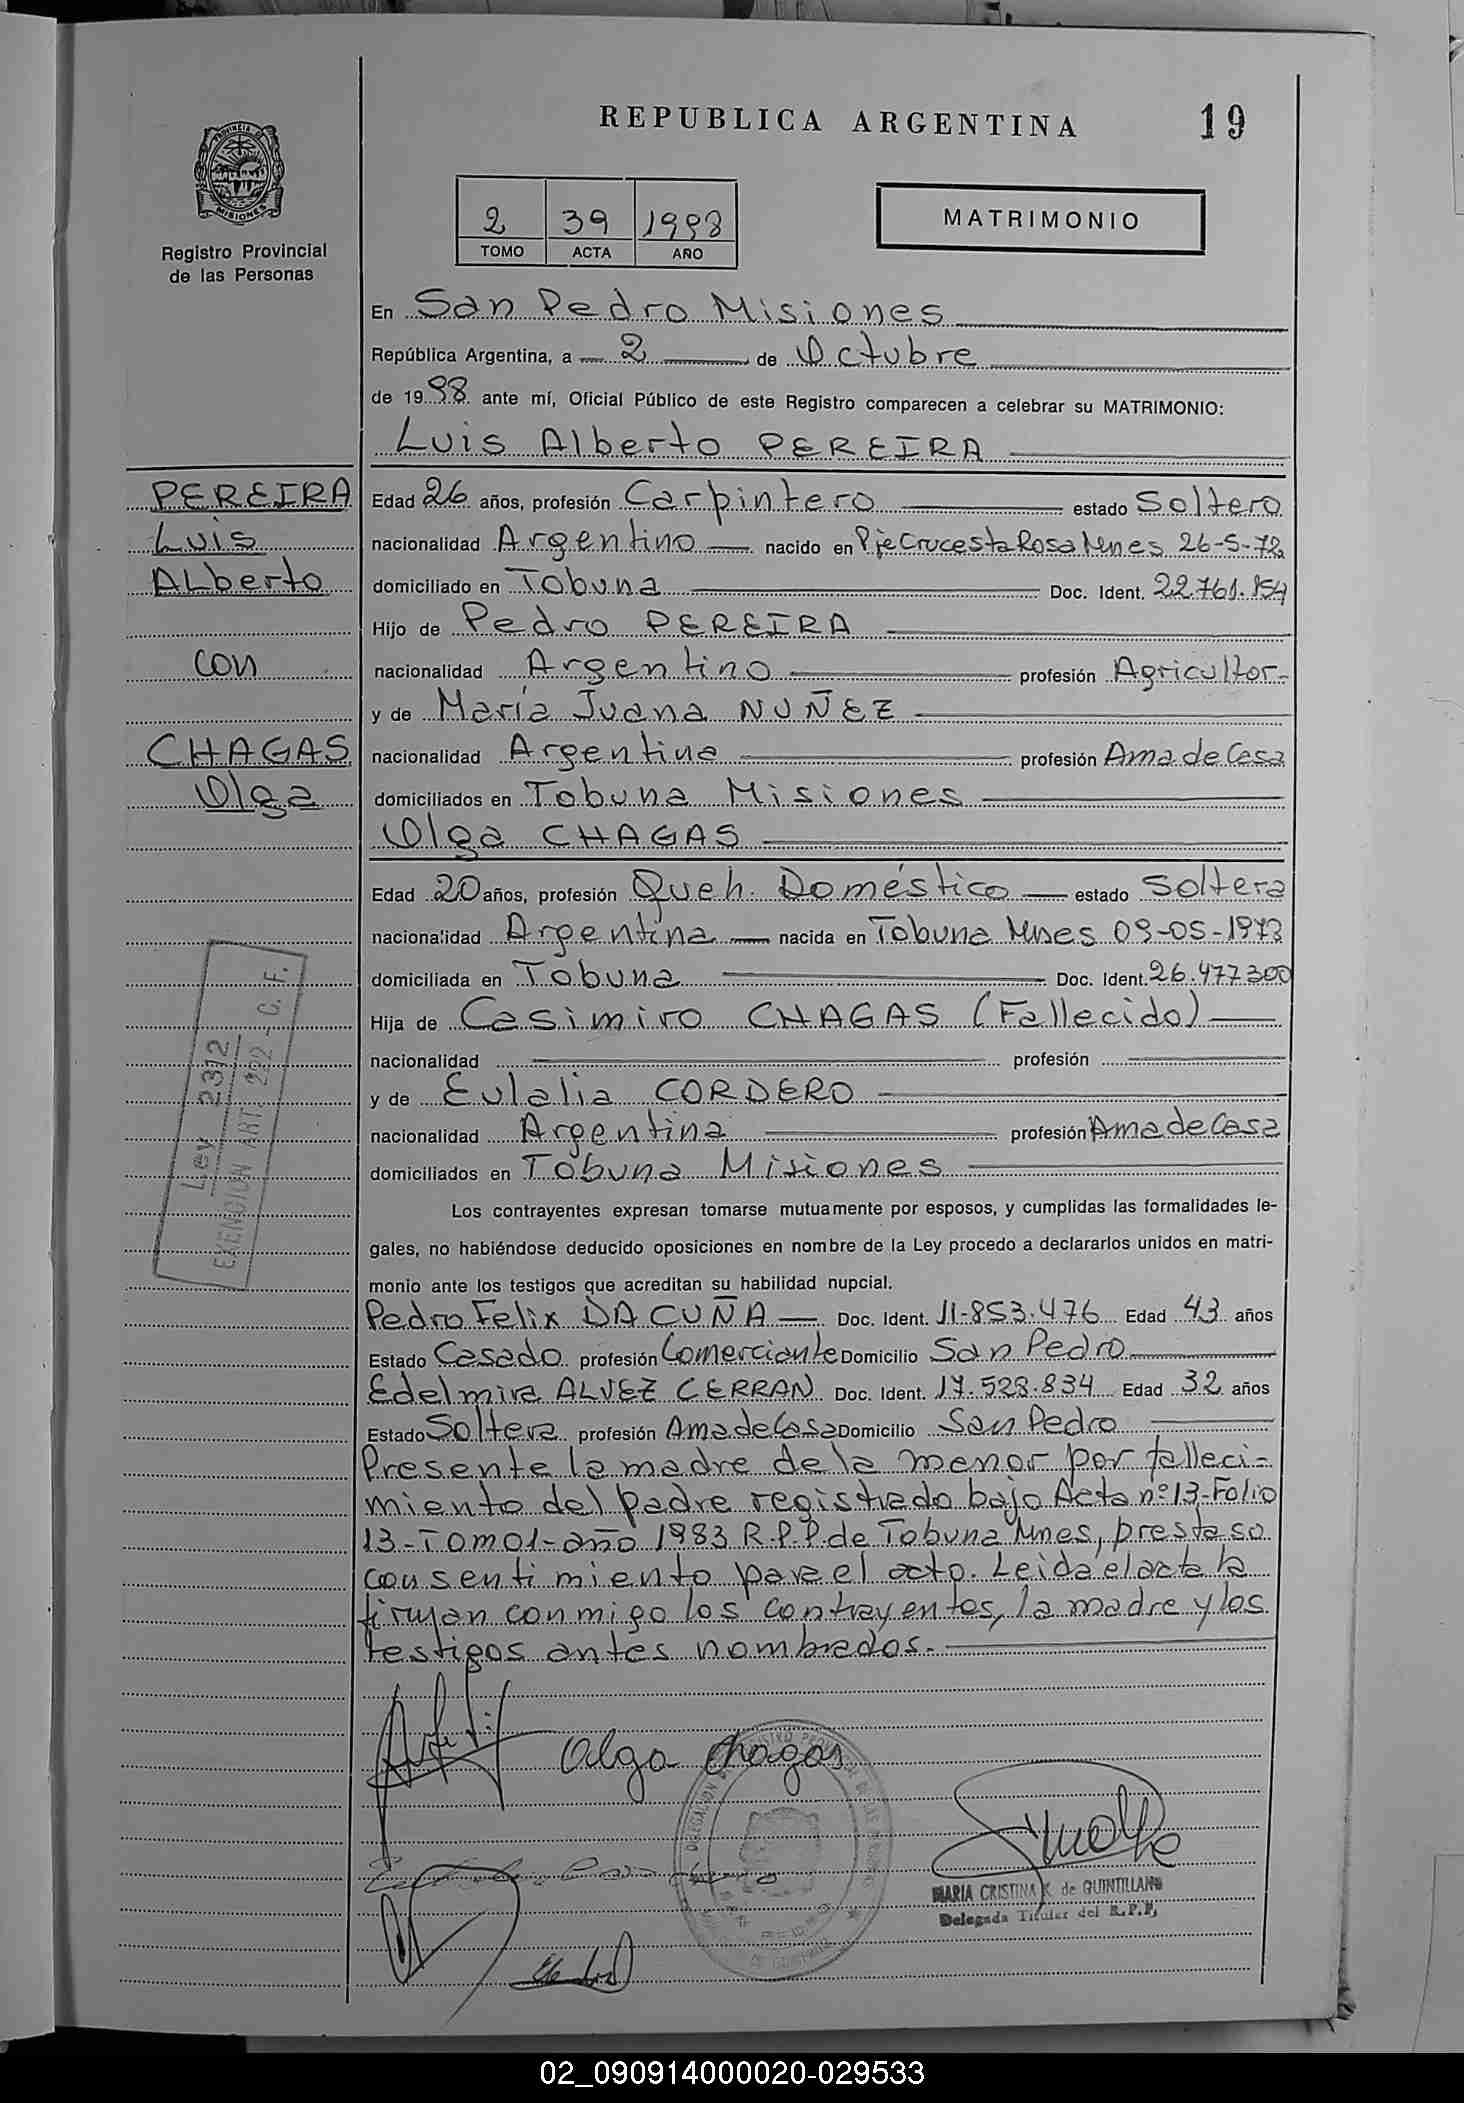 REPUBLICA ARGENTINA
19
PROVINCIA DE
MISIONES
Registro Provincial
de las Personas
2 39 1998
TOMO ACTA AÑO
MATRIMONIO
En San Pedro Misiones
República Argentina, a 2 de Octubre
de 1998 ante mí, Oficial Público de este Registro comparecen a celebrar su MATRIMONIO:
Luis Alberto PEREIRA
PEREIRA
Luis
ALberto
con
CHAGAS
Olga
Edad 26 años, profesión Carpintero estado Soltero
nacionalidad Argentino nacido en Pje Cruce Sta Rosa Mnes 26-5-72
domiciliado en Tobuna Doc. Ident. 22.761.154
Hijo de Pedro PEREIRA
nacionalidad Argentino profesión Agricultor-
y de María Juana NUÑEZ
nacionalidad Argentina profesión Ama de Casa
domiciliados en Tobuna Misiones
Olga CHAGAS
Edad 20 años, profesión Queh. Doméstico estado Soltera
nacionalidad Argentina nacida en Tobuna Mnes 09-05-1978
domiciliada en Tobuna Doc. Ident. 26.477300
Hija de Casimiro CHAGAS (Fallecido)
nacionalidad profesión
y de Eulalia CORDERO
nacionalidad Argentina profesión Ama de Casa
domiciliados en Tobuna Misiones
Ley 2312
EXENCION ART. 292 - C. F.
Los contrayentes expresan tomarse mutuamente por esposos, y cumplidas las formalidades le-
gales, no habiéndose deducido oposiciones en nombre de la Ley procedo a declararlos unidos en matri-
monio ante los testigos que acreditan su habilidad nupcial.
Pedro Felix DA CUÑA Doc. Ident. 11-853.476 Edad 43 años
Estado Casado profesión Comerciante Domicilio San Pedro
Edelmira ALVEZ CERRAN Doc. Ident. 17.528.834 Edad 32 años
Estado Soltera profesión Ama de Casa Domicilio San Pedro
Presente la madre de la menor por falleci-
miento del padre registrado bajo Acta nº 13-Folio
13-Tomo 1-año 1983 R.P.P. de Tobuna Mnes, presta su
consentimiento para el acto. Leída el acta la
firman conmigo los contrayentes, la madre y los
testigos antes nombrados.-
Olga Chagas
MARIA CRISTINA K. de QUINTILLAN
Delegada Titular del R.P.P.
02_090914000020-029533